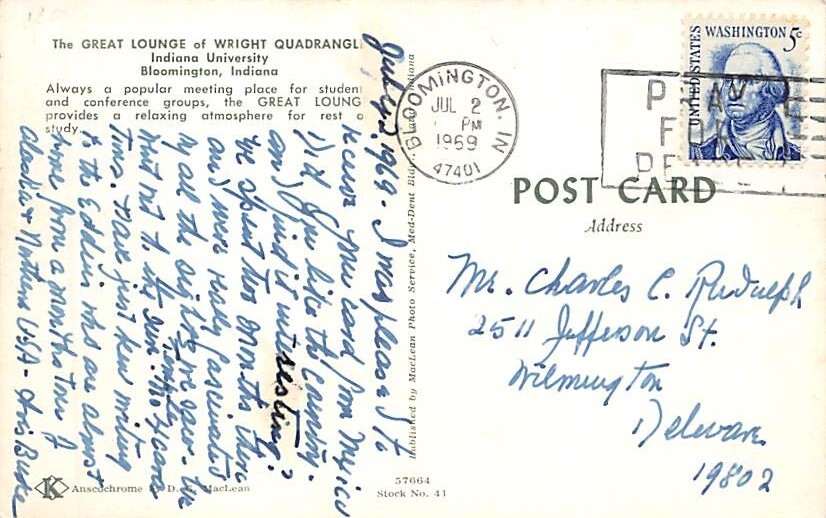 The GREAT LOUNGE of WRIGHT QUADRANGL
Indiana University
Bloomington, Indiana
Always a popular meeting place for studen
and conference groups, the GREAT LOUNG
provides a relaxing atmosphere for rest o
study.
July 2, 1969. I was pleased to
receive your card from Mexico
Did you like the country.
and find it interesting?
We spent two months there
and were really fascinated
by all the sights we saw. We
went out to the
Tins. Have just been writing
to the Eddins who are almost
home from a months tour of
Alaska & Northern USA - Avis Burke
Published by MacLean Photo Service, Med-Dent Bldg., Indiana
K Anscochrome by D. E. MacLean
57664
Stock No. 41
BLOOMINGTON, IN
JUL 2
PM
1969
47401
P AY
FO
DE
UNITED STATES
WASHINGTON 5c
POST CARD
Address
Mr. Charles C. Rudolph
2511 Jefferson St.
Wilmington
Delaware
19802